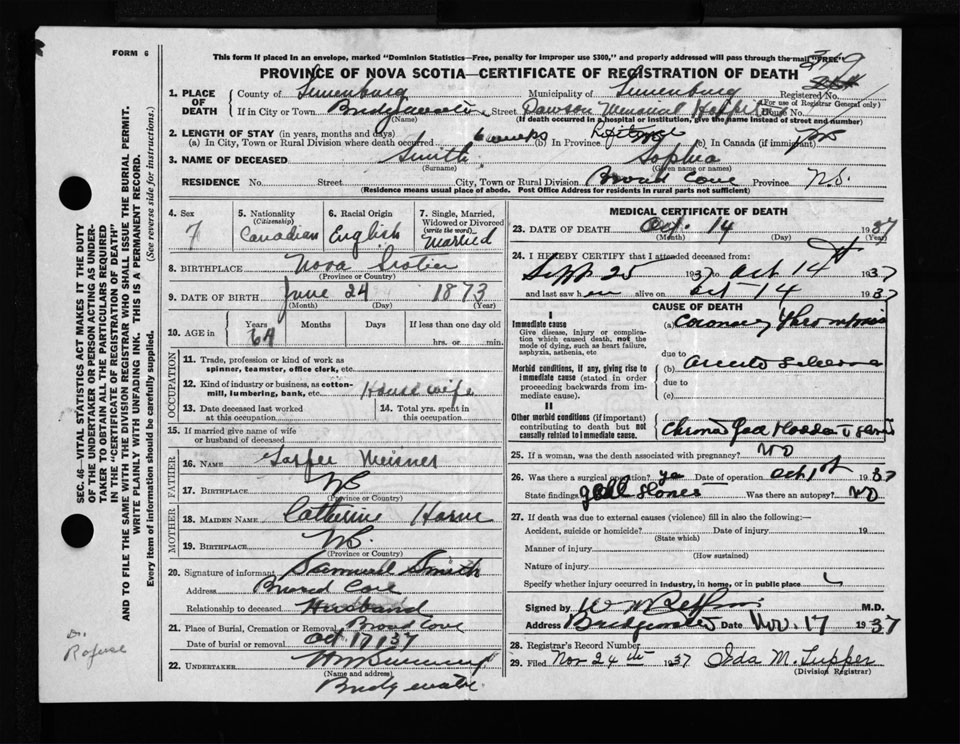 FORM 6
This form if placed in an envelope, marked "Dominion Statistics—Free, penalty for improper use $300," and properly addressed will pass through the mail "FREE"
PROVINCE OF NOVA SCOTIA—CERTIFICATE OF REGISTRATION OF DEATH
1. PLACE OF DEATH
County of Lunenburg Municipality of Lunenburg Registered No.
(For use of Registrar General only)
If in City or Town Bridgewater Street Dawson Memorial Hospital House No.
(Name) (If death occurred in a hospital or institution, give the name instead of street and number)
2. LENGTH OF STAY (in years, months and days)
(a) In City, Town or Rural Division where death occurred 6 weeks (b) In Province Lifetime (c) In Canada (if immigrant)
3. NAME OF DECEASED Smith Sophia
(Surname) (Given name or names)
RESIDENCE No. Street City, Town or Rural Division Broad Cove Province N.S.
(Residence means usual place of abode. Post Office Address for residents in rural parts not sufficient)
4. Sex F
5. Nationality (Citizenship) Canadian
6. Racial Origin English
7. Single, Married, Widowed or Divorced (write the word) Married
8. BIRTHPLACE Nova Scotia
(Province or Country)
9. DATE OF BIRTH June 24 1873
(Month) (Day) (Year)
10. AGE in Years Months Days If less than one day old
64 hrs. or min.
OCCUPATION
11. Trade, profession or kind of work as spinner, teamster, office clerk, etc.
12. Kind of industry or business, as cotton-mill, lumbering, bank, etc. House wife
13. Date deceased last worked at this occupation
14. Total yrs. spent in this occupation
15. If married give name of wife or husband of deceased
FATHER
16. NAME Meisner
17. BIRTHPLACE N.S.
(Province or Country)
MOTHER
18. MAIDEN NAME Catherine
19. BIRTHPLACE N.S.
(Province or Country)
20. Signature of informant Samuel Smith
Address Broad Cove
Relationship to deceased Husband
21. Place of Burial, Cremation or Removal Broad Cove
Date of burial or removal Oct 17 1937
22. UNDERTAKER
(Name and address)
Bridgewater
MEDICAL CERTIFICATE OF DEATH
23. DATE OF DEATH Oct. 14 1937
(Month) (Day) (Year)
24. I HEREBY CERTIFY that I attended deceased from:
Sept 25 1937 to Oct 14th 1937
and last saw her alive on Oct 14 1937
CAUSE OF DEATH
I
Immediate cause
Give disease, injury or complication which caused death, not the mode of dying, such as heart failure, asphyxia, asthenia, etc
(a) Coronary Thrombosis
due to
Morbid conditions, if any, giving rise to immediate cause (stated in order proceeding backwards from immediate cause).
(b)
due to
(c)
II
Other morbid conditions (if important) contributing to death but not causally related to immediate cause.
25. If a woman, was the death associated with pregnancy? NO
26. Was there a surgical operation? yes Date of operation Oct 1st 1937
State findings gall stones Was there an autopsy? NO
27. If death was due to external causes (violence) fill in also the following:—
Accident, suicide or homicide? Date of injury 19
(State which)
Manner of injury
(How sustained)
Nature of injury
Specify whether injury occurred in industry, in home, or in public place
Signed by M.D.
Address Bridgewater Date Nov. 17 1937
28. Registrar's Record Number
29. Filed Nov 24th 1937 Ida M. Tupper
(Division Registrar)
SEC. 46—VITAL STATISTICS ACT MAKES IT THE DUTY
OF THE UNDERTAKER OR PERSON ACTING AS UNDERTAKER TO OBTAIN ALL THE PARTICULARS REQUIRED
IN THE "CERTIFICATE OF REGISTRATION OF DEATH"
AND TO FILE THE SAME WITH THE DIVISION REGISTRAR WHO SHALL ISSUE THE BURIAL PERMIT.
WRITE PLAINLY WITH UNFADING INK. THIS IS A PERMANENT RECORD.
Every item of information should be carefully supplied. (See reverse side for instructions.)